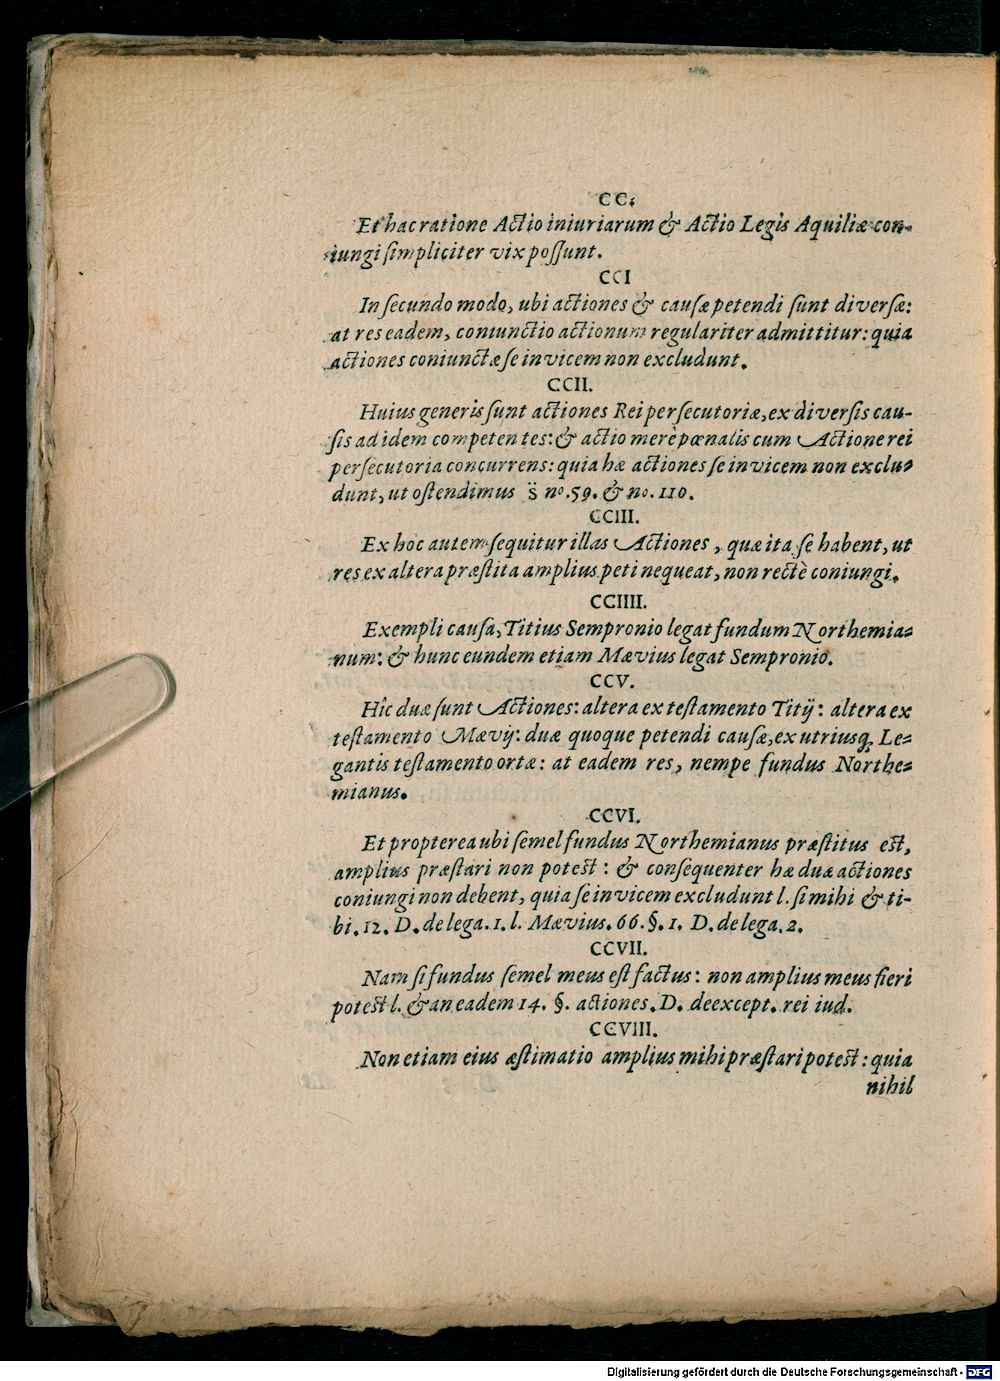 CC.
Et hac ratione Actio iniuriarum & Actio Legis Aquiliæ con-
iungi ſimpliciter vix poſſunt.
CCI
In ſecundo modo, ubi actiones & cauſæ petendi ſunt diverſæ:
at res eadem, coniunctio actionum regulariter admittitur: quia
actiones coniunctæ ſe invicem non excludunt.
CCII.
Huius generis ſunt actiones Rei perſecutoriæ, ex diverſis cau-
ſis ad idem competentes: & actio merè pœnalis cum Actione rei
perſecutoria concurrens: quia hæ actiones ſe invicem non exclu-
dunt, ut oſtendimus s̈ no. 59. & no. 110.
CCIII.
Ex hoc autem ſequitur illas Actiones, quæ ita ſe habent, ut
res ex altera præſtita amplius peti nequeat, non rectè coniungi.
CCIIII.
Exempli cauſa, Titius Sempronio legat fundum Northemia-
num: & hunc eundem etiam Mævius legat Sempronio.
CCV.
Hîc duæ ſunt Actiones: altera ex teſtamento Titij: altera ex
teſtamento Mævij: duæ quoque petendi cauſæ, ex utriusq; Le-
gantis teſtamento ortæ: at eadem res, nempe fundus Northe-
mianus.
CCVI.
Et propterea ubi ſemel fundus Northemianus præſtitus est,
amplius præſtari non potest: & conſequenter hæ duæ actiones
coniungi non debent, quia ſe invicem excludunt l. ſi mihi & ti-
bi. 12. D. de lega. 1. l. Mævius. 66. §. 1. D. de lega. 2.
CCVII.
Nam ſi fundus ſemel meus eſt factus: non amplius meus fieri
potest l. & an eadem 14. §. actiones. D. de except. rei iud.
CCVIII.
Non etiam eius æſtimatio amplius mihi præſtari potest: quia
nihil
Digitalisierung gefördert durch die Deutsche Forschungsgemeinschaft - DFG